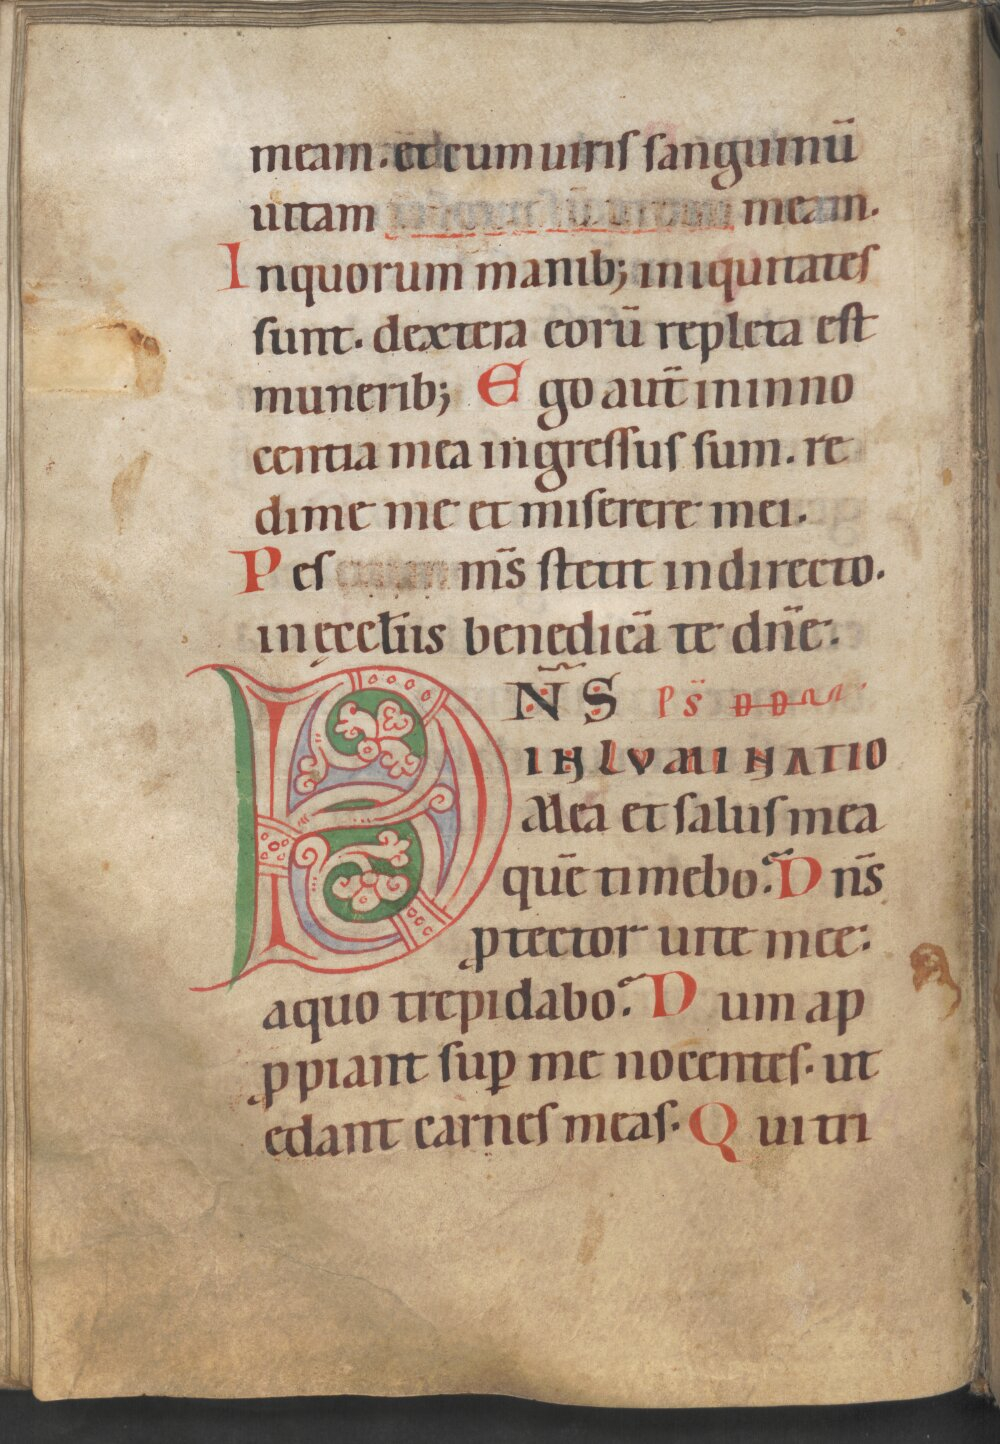 meam. et cum uiris sanguinū
uitam meam.
In quorum manib; iniquitates
sunt. dextera eorū repleta est
munerib; Ego aut̄ in inno
centia mea ingressus sum. re
dime me et miserere mei.
Pes m̄s stetit in directo.
in ęccl̄iis benedicā te dn̄e.
DN̄S PS̄ DD
INLVMINATIO
Mea et salus mea
quē timebo. Dn̄s
ꝓtector uite mee:
a quo trepidabo. Dum ap
ꝓpiant suꝑ me nocentes. ut
edant carnes meas. Qui tri